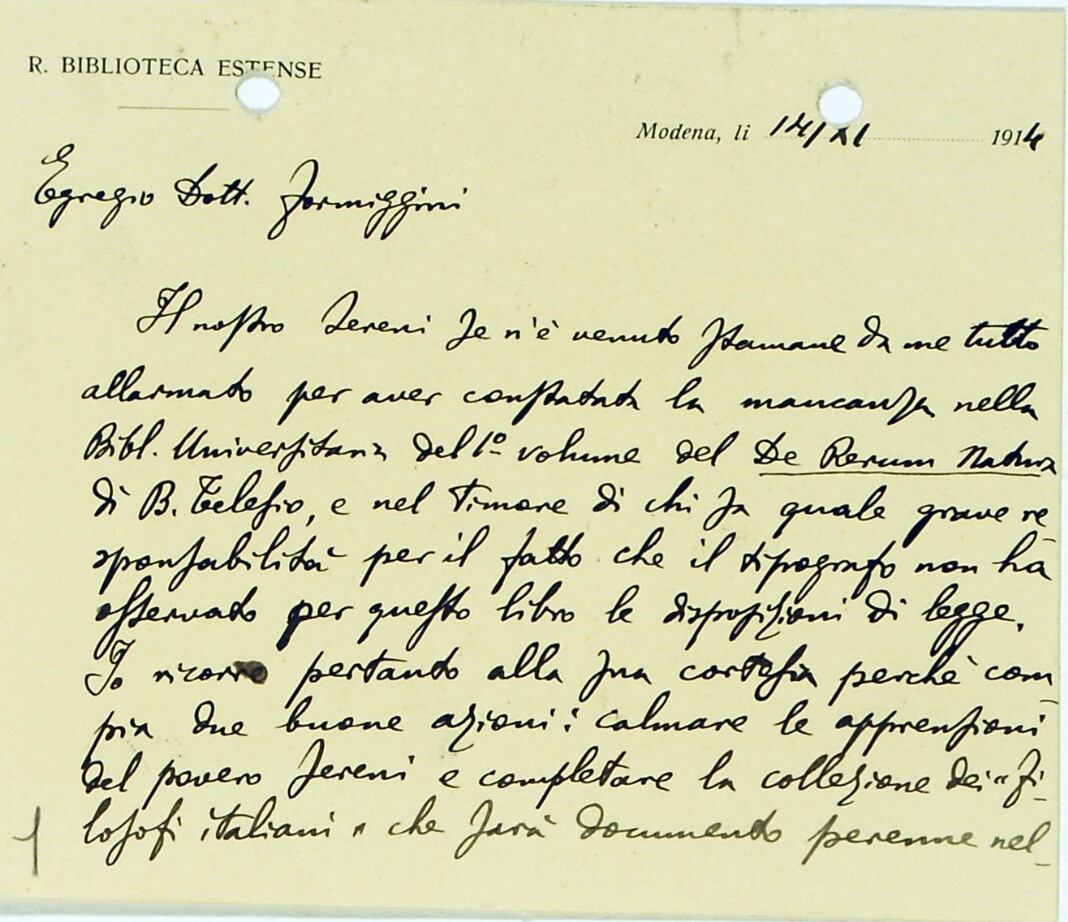 R. BIBLIOTECA ESTENSE
Modena, li 14/XI 1914
Egregio Dott. Formiggini
Il nostro Sereni se n'è venuto stamane da me tutto
allarmato per aver constatata la mancanza nella
Bibl. Universitaria del 1º volume del De Rerum Natura
di B. Telesio, e nel timore di chi sa quale grave re-
sponsabilità per il fatto che il tipografo non ha
osservato per questo libro le disposizioni di legge.
Io ricorro pertanto alla sua cortesia perchè com-
pia due buone azioni: calmare le apprensioni
del povero Sereni e completare la collezione dei "Fi-
losofi italiani" che sarà documento perenne nel-